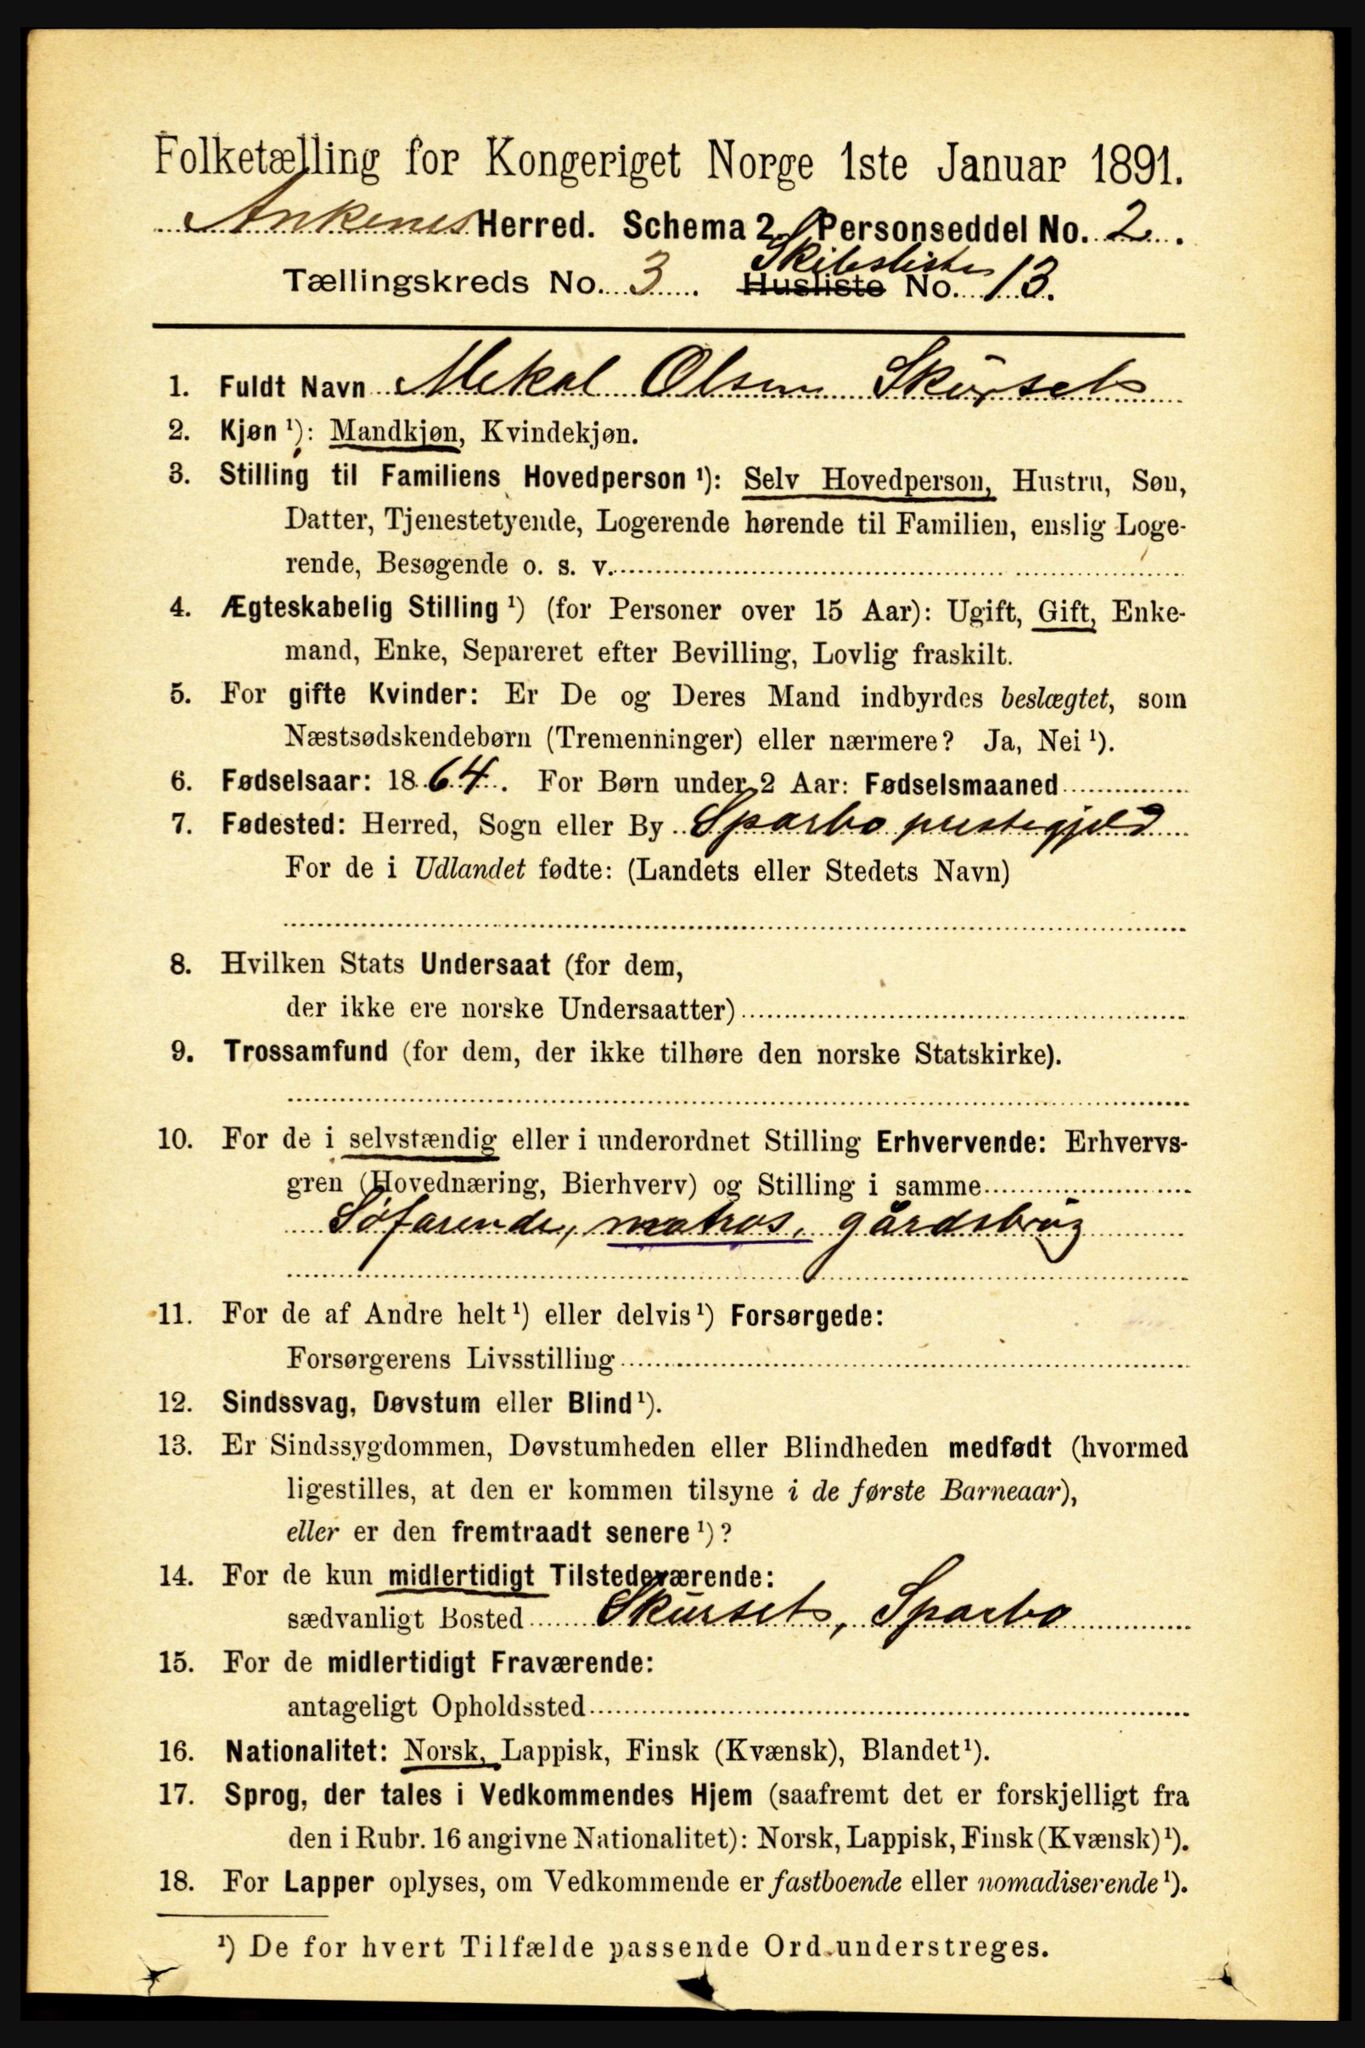 Folketælling for Kongeriget Norge 1ste Januar 1891.
Ankenes Herred. Schema 2. Personseddel No. 2.
Skibsliste
Tællingskreds No. 3. Husliste No. 13.
1. Fuldt Navn Mekal Olsen Skurset
2. Kjøn ¹): Mandkjøn, Kvindekjøn.
3. Stilling til Familiens Hovedperson ¹): Selv Hovedperson, Hustru, Søn,
Datter, Tjenestetyende, Logerende hørende til Familien, enslig Loge-
rende, Besøgende o. s. v.
4. Ægteskabelig Stilling ¹) (for Personer over 15 Aar): Ugift, Gift, Enke-
mand, Enke, Separeret efter Bevilling, Lovlig fraskilt.
5. For gifte Kvinder: Er De og Deres Mand indbyrdes beslægtet, som
Næstsødskendebørn (Tremenninger) eller nærmere? Ja, Nei ¹).
6. Fødselsaar: 1864. For Børn under 2 Aar: Fødselsmaaned
7. Fødested: Herred, Sogn eller By Sparbo prestegjeld
For de i Udlandet fødte: (Landets eller Stedets Navn)
8. Hvilken Stats Undersaat (for dem,
der ikke ere norske Undersaatter)
9. Trossamfund (for dem, der ikke tilhøre den norske Statskirke).
10. For de i selvstændig eller i underordnet Stilling Erhvervende: Erhvervs-
gren (Hovednæring, Bierhverv) og Stilling i samme
Søfarende, matros, gårdsbrug
11. For de af Andre helt ¹) eller delvis ¹) Forsørgede:
Forsørgerens Livsstilling
12. Sindssvag, Døvstum eller Blind ¹).
13. Er Sindssygdommen, Døvstumheden eller Blindheden medfødt (hvormed
ligestilles, at den er kommen tilsyne i de første Barneaar),
eller er den fremtraadt senere ¹)?
14. For de kun midlertidigt Tilstedeværende:
sædvanligt Bosted Skurset, Sparbo
15. For de midlertidigt Fraværende:
antageligt Opholdssted
16. Nationalitet: Norsk, Lappisk, Finsk (Kvænsk), Blandet ¹).
17. Sprog, der tales i Vedkommendes Hjem (saafremt det er forskjelligt fra
den i Rubr. 16 angivne Nationalitet): Norsk, Lappisk, Finsk (Kvænsk) ¹).
18. For Lapper oplyses, om Vedkommende er fastboende eller nomadiserende ¹).
¹) De for hvert Tilfælde passende Ord understreges.